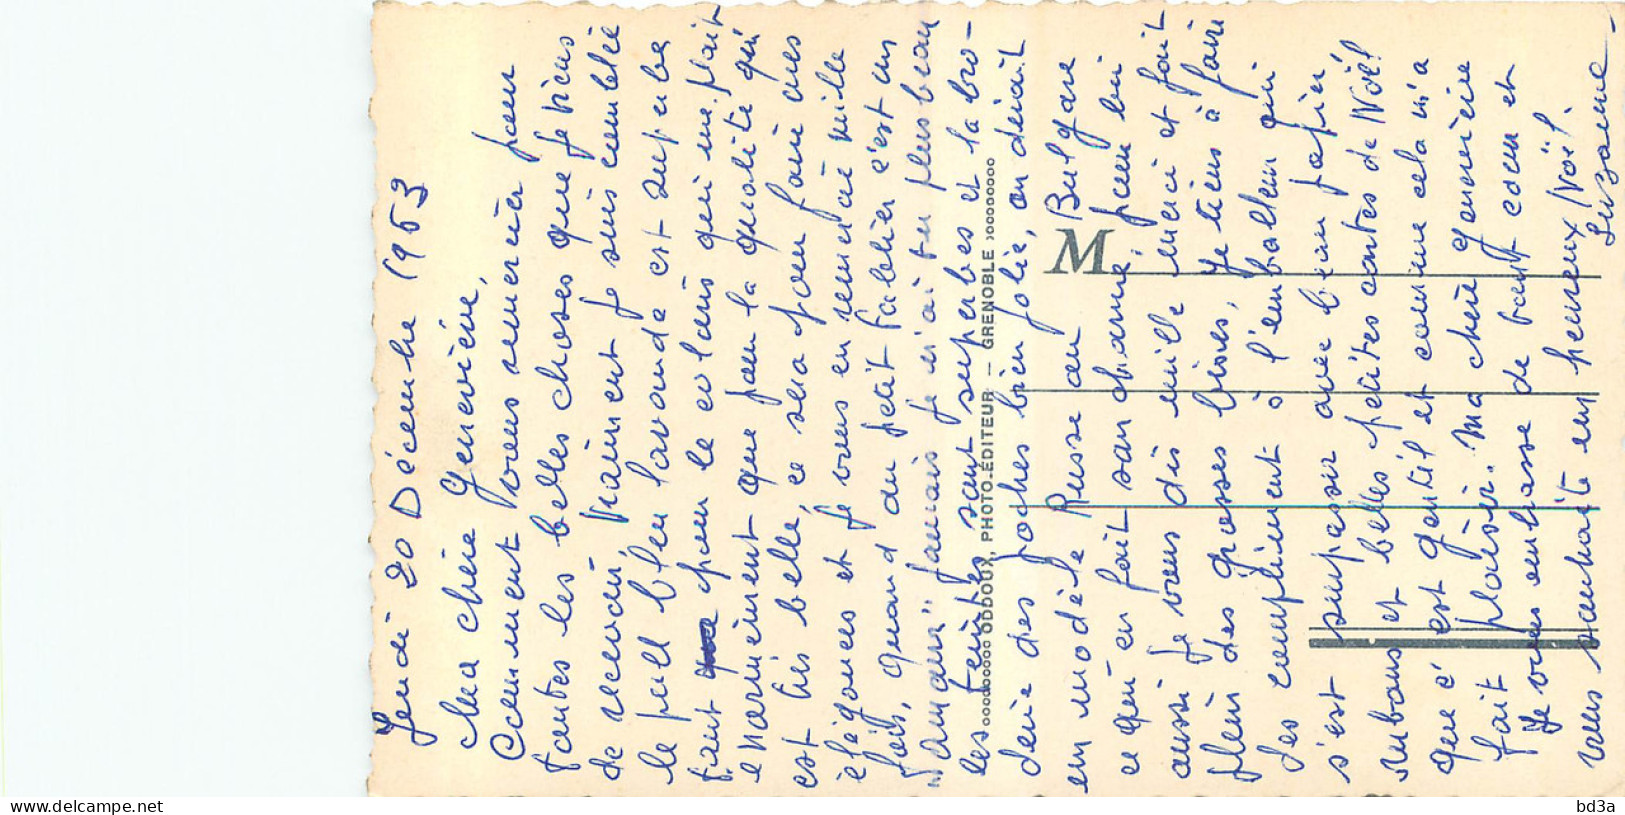 Jeudi 20 Décembre 1953
Ma chère Geneviève,
Comment vous remercier pour
toutes les belles choses que je viens
de recevoir, vraiment je suis comblée
le pull bleu lavande est superbe
tant pour le coloris qui me plait
énormément que pour la qualité qui
est très belle, ce sera pour faire mes
élégances et je vous en remercie mille
fois, quand au petit tablier c'est un
"amour" jamais je n'ai eu plus beau
les teintes sont superbes et la bro-
derie des poches bien jolie, on dirait
un modèle Russe ou Bulgare
ce qui en fait son charme, pour lui
aussi je vous dis mille merci et fait
plein des grosses bises, je tiens à faire
des compliments à l'emballeur qui
s'est surpassé avec beau papier
rubans et belles petites cartes de Noël
que c'est gentil et comme cela m'a
fait plaisir. Ma chère Geneviève
Je vous embrasse de tout coeur et
vous souhaite un heureux Noël.
Suzanne
ODDOUX, PHOTO-ÉDITEUR – GRENOBLE
M
bd3a